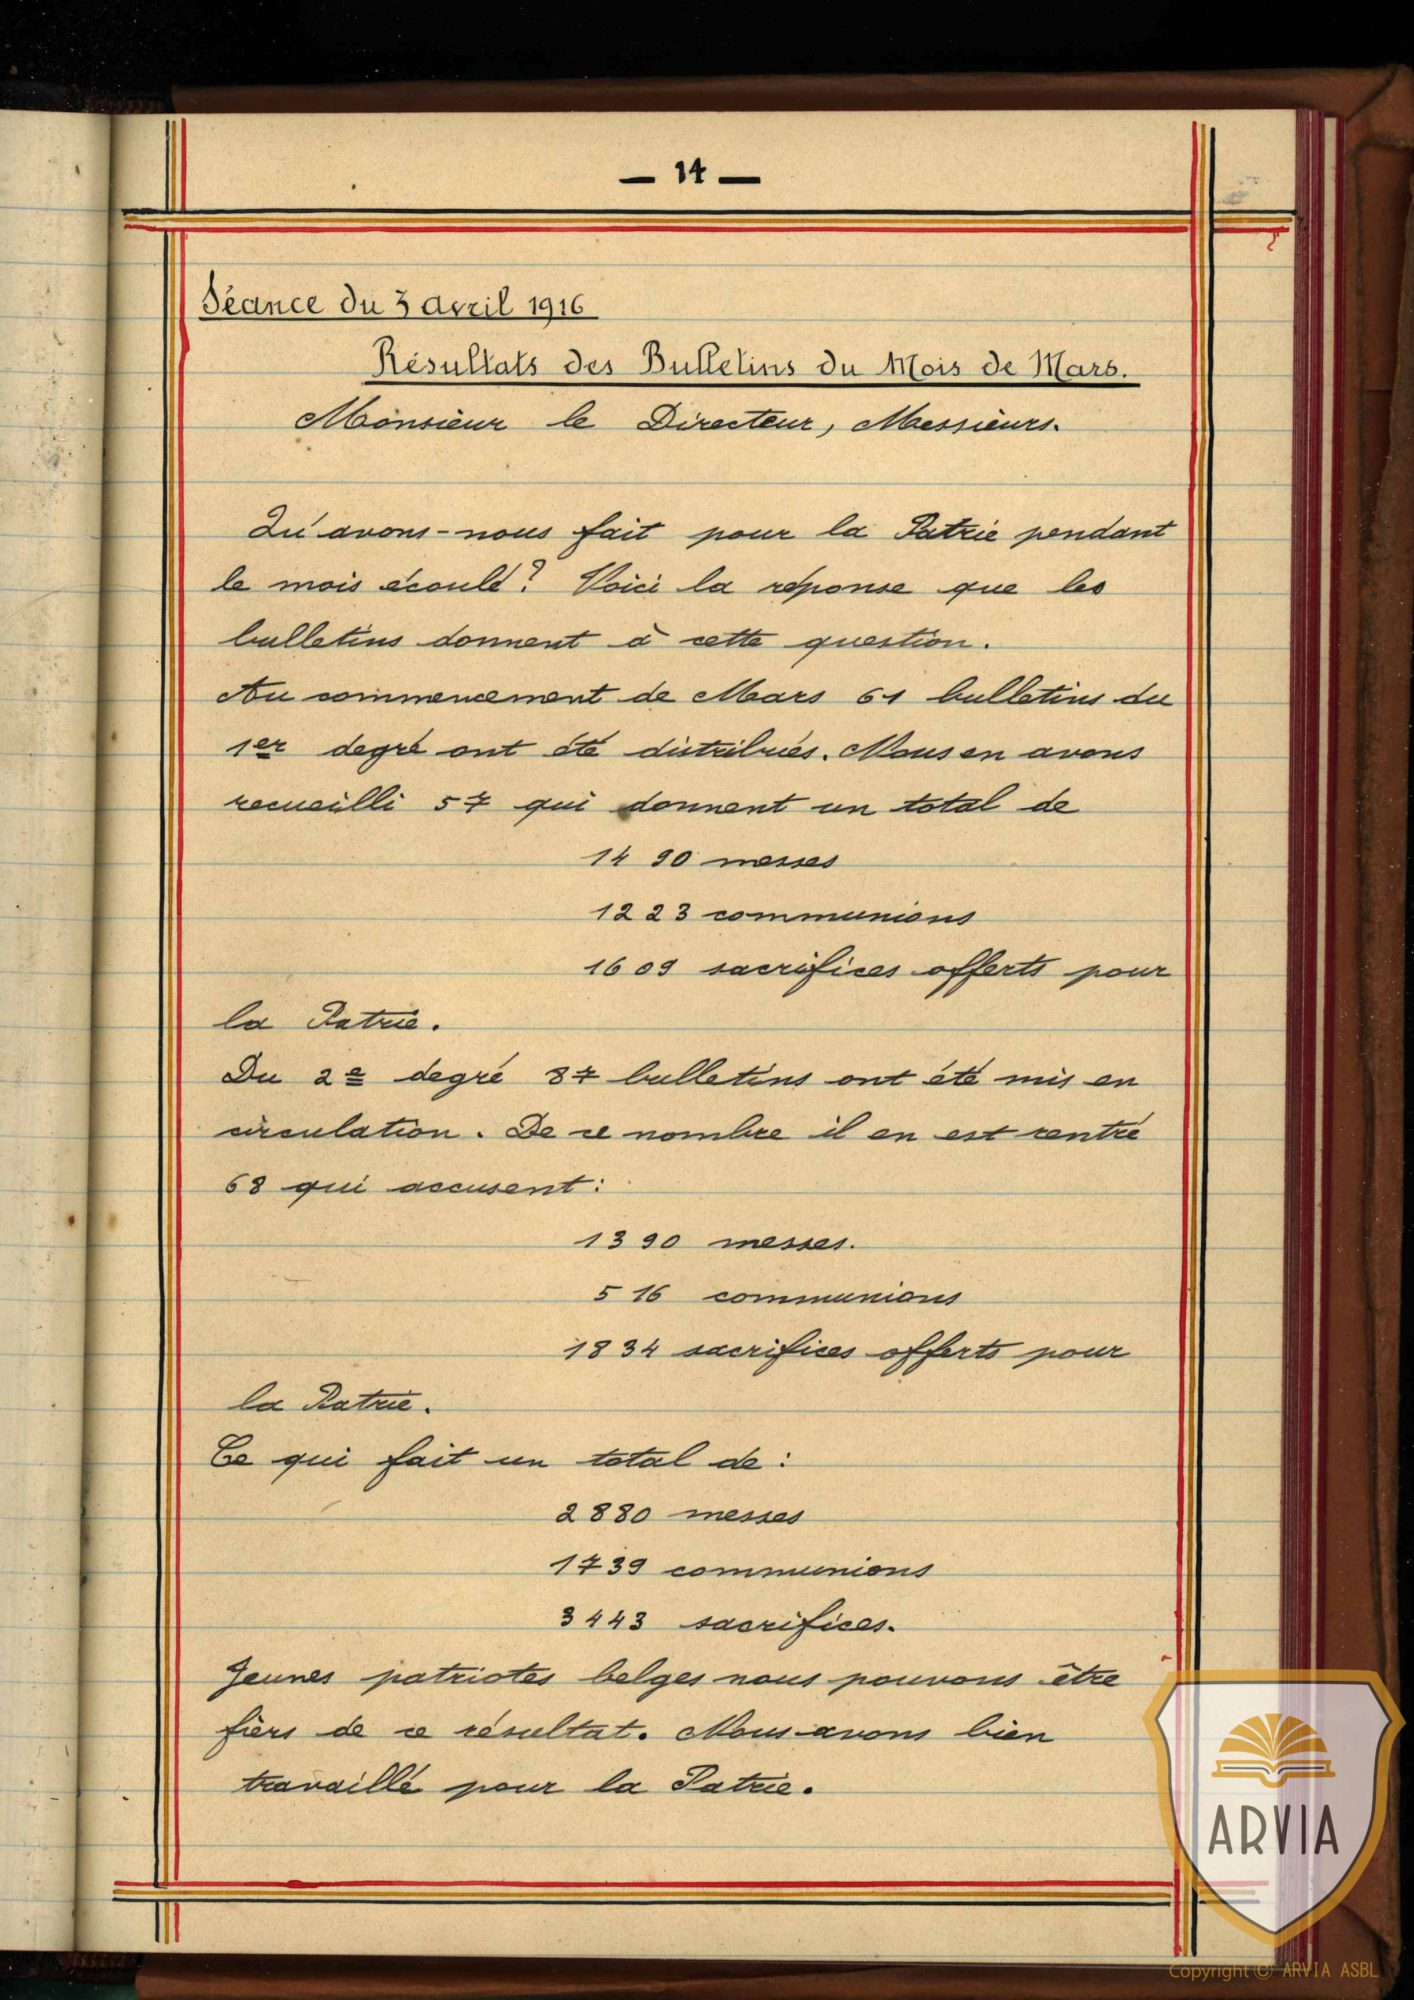 — 14 —
Séance du 3 avril 1916
Résultats des Bulletins du Mois de Mars.
Monsieur le Directeur, Messieurs.
Qu'avons-nous fait pour la Patrie pendant
le mois écoulé? Voici la réponse que les
bulletins donnent à cette question.
Au commencement de Mars 61 bulletins du
1er degré ont été distribués. Nous en avons
recueilli 57 qui donnent un total de
1490 messes
1223 communions
1609 sacrifices offerts pour
la Patrie.
Du 2e degré 87 bulletins ont été mis en
circulation. De ce nombre il en est rentré
68 qui accusent:
1390 messes.
516 communions
1834 sacrifices offerts pour
la Patrie.
Ce qui fait un total de:
2880 messes
1739 communions
3443 sacrifices.
Jeunes patriotes belges nous pouvons être
fiers de ce résultat. Nous avons bien
travaillé pour la Patrie.
ARVIA
Copyright © ARVIA ASBL